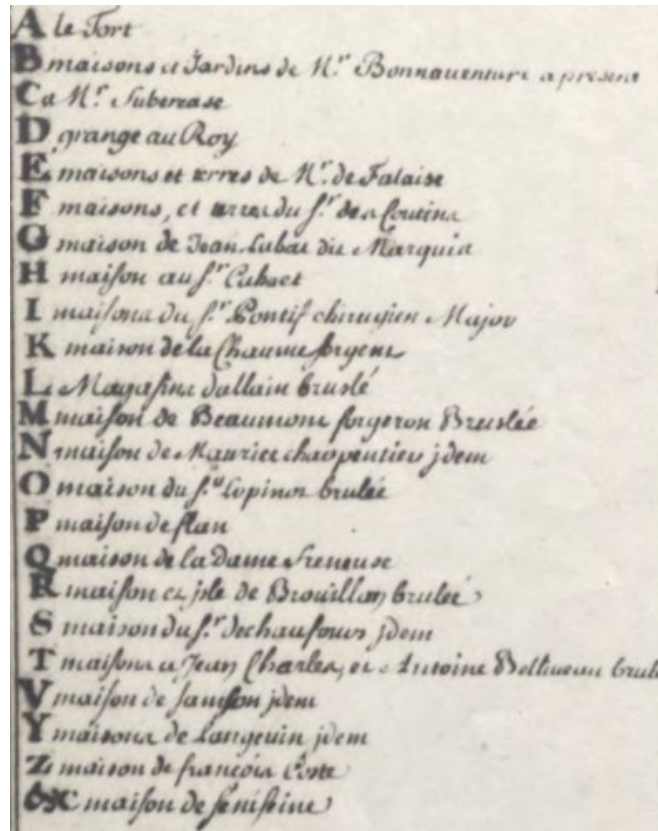 A le Fort
B maisons et Jardins de Mr. Bonnauenture a present
C a Mr. Subercase
D grange au Roy
E maisons et terres de Mr. de Falaise
F maisons, et terres du Sr. des Coutins
G maison de Jean Labat dit Marquis
H maison au Sr. Cahoet
I maisons du Sr. Pontif chirugien Major
K maison de la Chaume sergent
L Magasins dallain bruslé
M maison de Beaumont forgeron Bruslée
N maison de Maurice charpentier jdem
O maison du Sr. Lopinot brulée
P maison de flan
Q maison de la Dame freneuse
R maison et jsle de Brouillan brulée
S maison du Sr. dechaufours jdem
T maisons a Jean Charles, et Antoine Belliueau brulé
V maison de samson jdem
Y maisons de Langeuin jdem
Z maison de françois Coste
& maison de